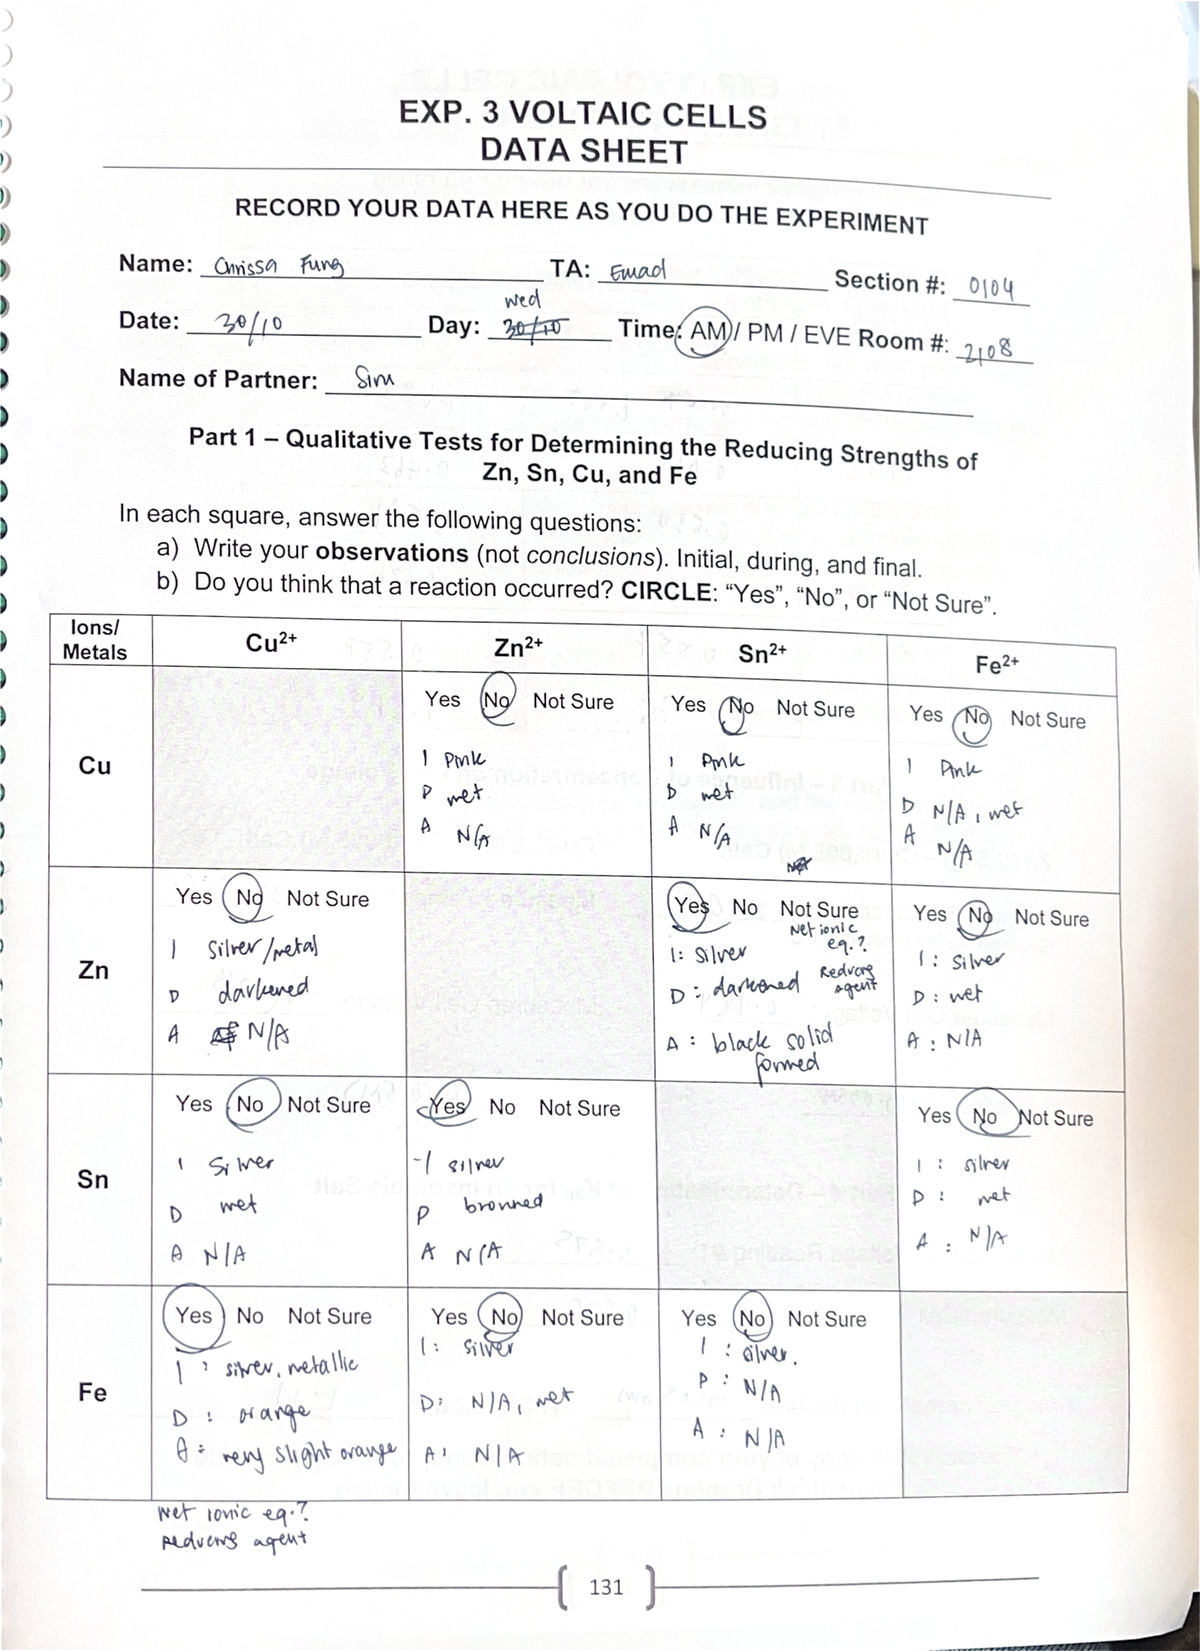 EXP. 3 VOLTAIC CELLS
DATA SHEET
RECORD YOUR DATA HERE AS YOU DO THE EXPERIMENT
Name: Chrissa Fung TA: Emad Section #: 0104
wed
Date: 30/10 Day: 30/10 Time: AM / PM / EVE Room #: 2108
Name of Partner: Simi
Part 1 – Qualitative Tests for Determining the Reducing Strengths of
Zn, Sn, Cu, and Fe
In each square, answer the following questions:
a) Write your observations (not conclusions). Initial, during, and final.
b) Do you think that a reaction occurred? CIRCLE: "Yes", "No", or "Not Sure".
Ions/
Metals
Cu2+
Zn2+
Sn2+
Fe2+
Cu
Yes No Not Sure
I Pink
D wet
A N/A
Yes No Not Sure
I Pink
D wet
A N/A
Yes No Not Sure
I Pink
D N/A, wet
A N/A
Zn
Yes No Not Sure
I Silver/metal
D darkened
A N/A
Yes No Not Sure
Net ionic
eq.?
I: Silver
Reducing
agent
D: darkened
A: black solid
formed
Yes No Not Sure
I: Silver
D: wet
A: N/A
Sn
Yes No Not Sure
I Silver
D wet
A N/A
Yes No Not Sure
I silver
D bronned
A N/A
Yes No Not Sure
I: silver
D: wet
A: N/A
Fe
Yes No Not Sure
I: silver, metallic
D: orange
A: very slight orange
Yes No Not Sure
I: silver
D: N/A, wet
A: N/A
Yes No Not Sure
I: silver.
D: N/A
A: N/A
Net ionic eq.?
Reducing agent
131